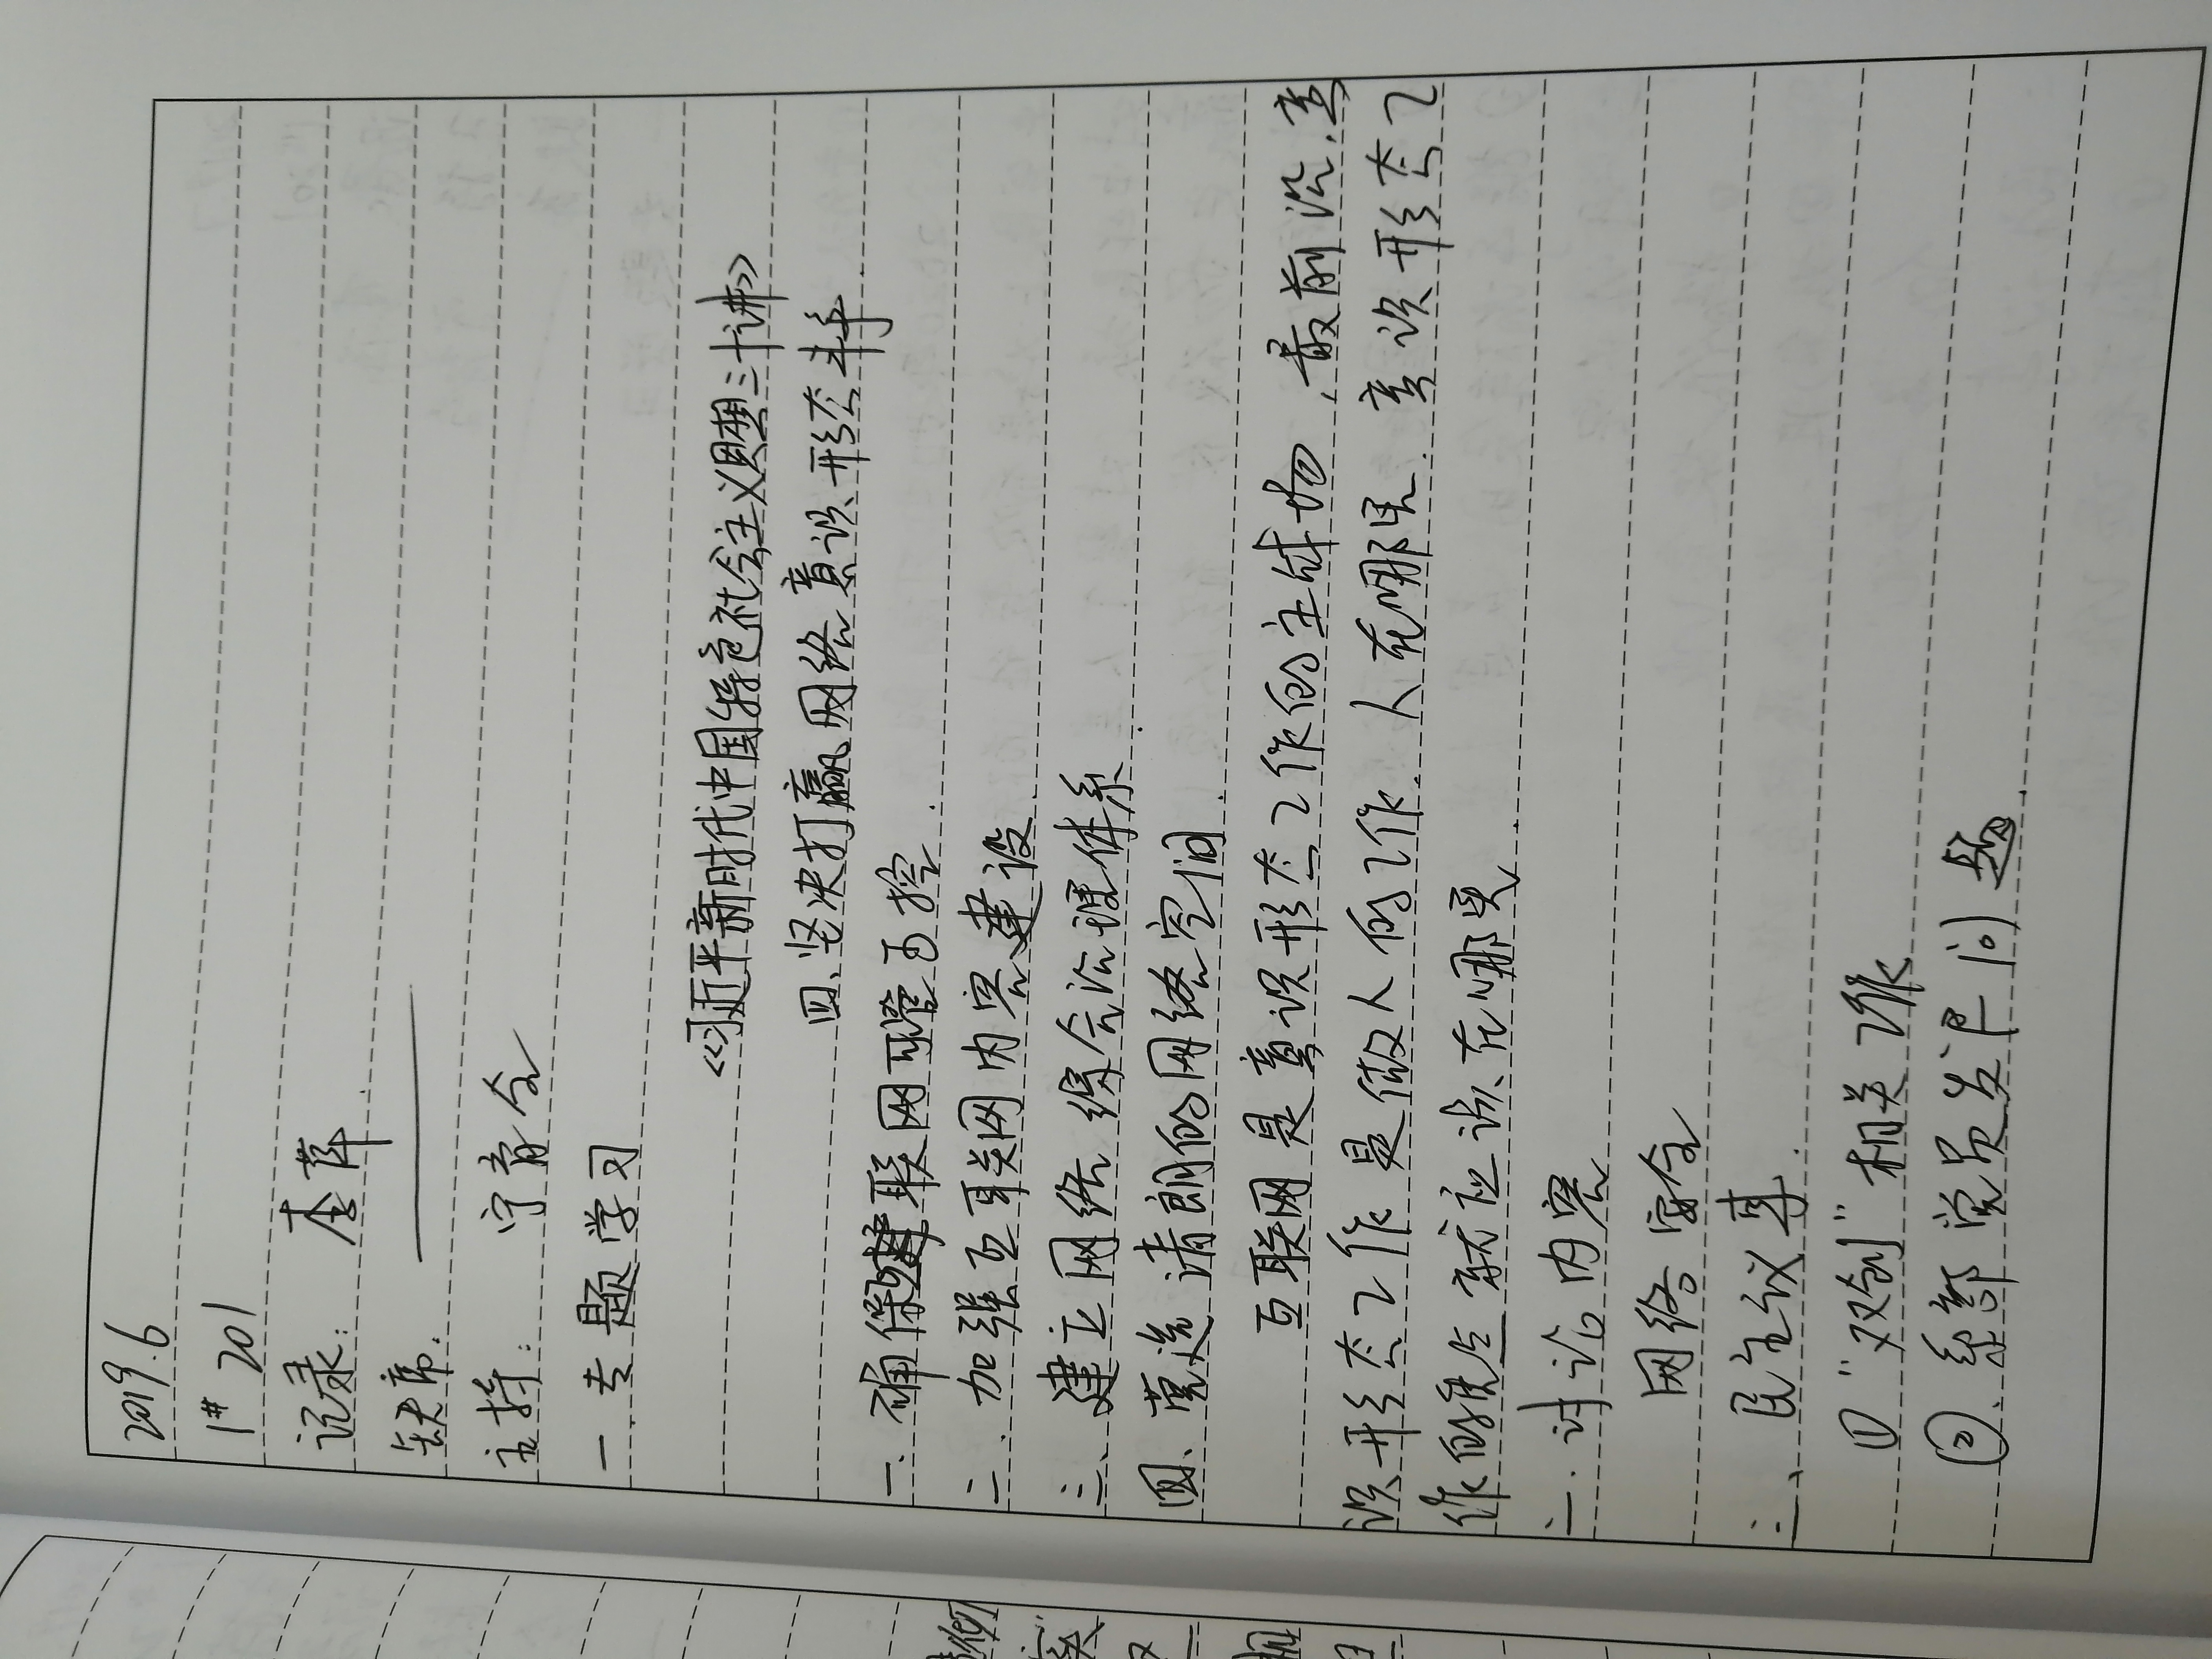 2019.6
1# 201
记录: 李萍
缺席.
主持: 宁育令
一.专题学习
《习近平新时代中国特色社会主义思想三十讲》
四、坚决打赢网络意识形态斗争
一.确保联网可管可控
二.加强互联网内容建设
三、建立网络综合治理体系
四、营造清朗的网络空间
互联网是意识形态工作的主战场,最前沿.意
识形态工作是做人的工作.人在哪里.意识形态工
作的重点就应该在哪里
二.讨论内容
网络安全
三、民主议事
① "双创"相关工作
②.系部党员发展问题